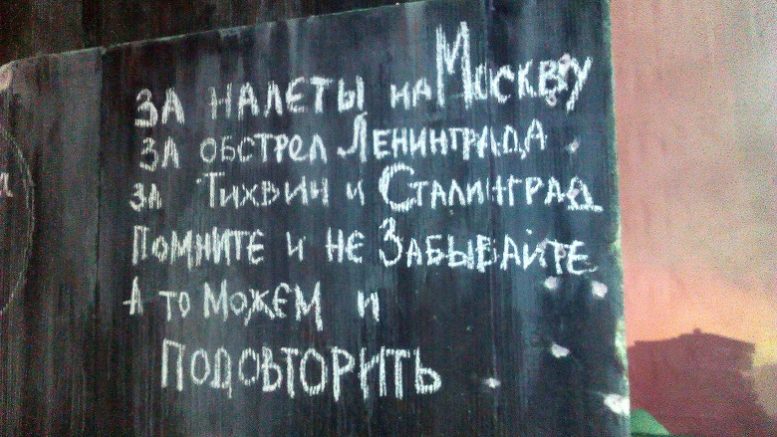 За налеты на Москву
За обстрел Ленинграда.
за Тихвин и Сталинград
Помните и не Забывайте
А то Можем и
подовторить